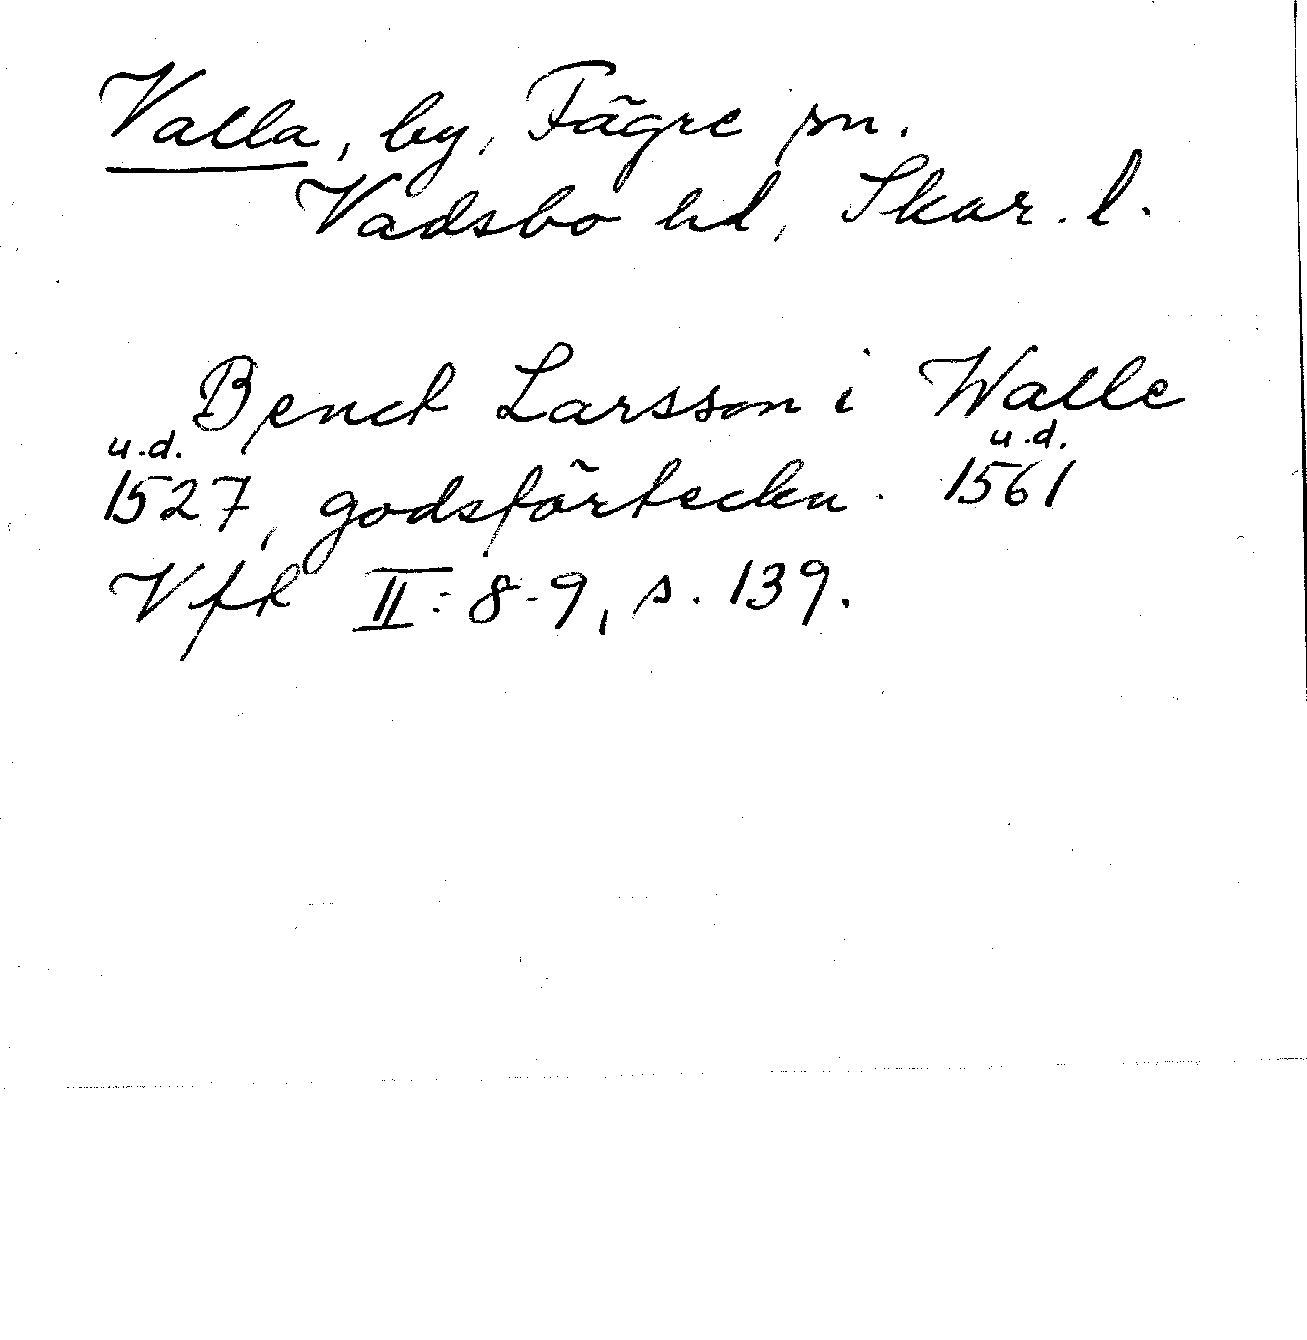 Valla, by, Fägre sn.
Vadsbo hd, Skar. l.
Benct Larsson i Walle
u.d. u.d.
1527, godsförteckn. 1561
Vft II: 8-9, s. 139.